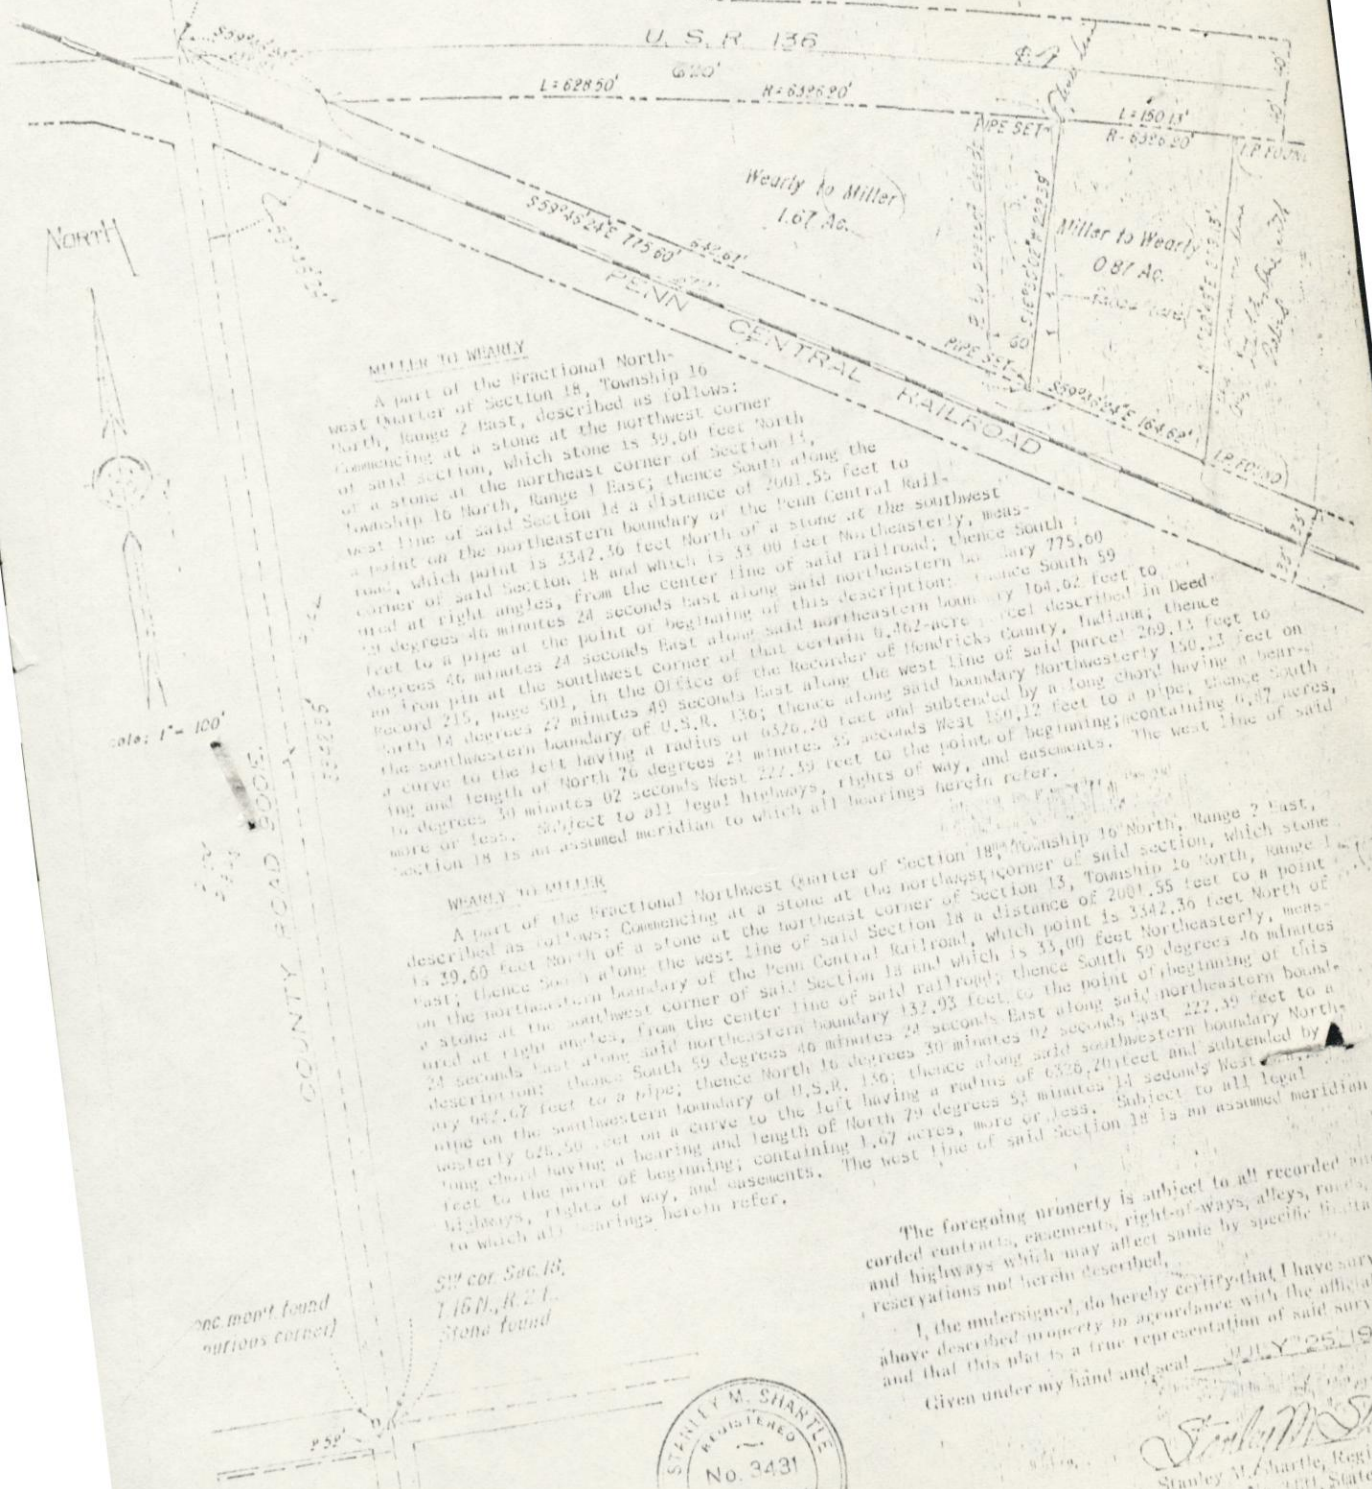 U. S. R. 136
620'
L = 628.50' R = 6326.20'
PIPE SET
L = 150.13'
R = 6326.20'
I.P. FOUND
NORTH
Wearly to Miller
1.67 Ac.
Miller to Wearly
0.87 Ac.
S59°46'24"E 775.60'
642.67'
PENN CENTRAL RAILROAD
PIPE SET
S59°46'24"E 164.62'
I.P. FOUND
1" = 100'
COUNTY ROAD 900E.
MILLER TO WEARLY
A part of the Fractional North-
west Quarter of Section 18, Township 16
North, Range 2 East, described as follows:
Commencing at a stone at the northwest corner
of said section, which stone is 39.60 feet North
of a stone at the northeast corner of Section 13,
Township 16 North, Range 1 East; thence South along the
west line of said Section 18 a distance of 2001.55 feet to
a point on the northeastern boundary of the Penn Central Rail-
road, which point is 3342.36 feet North of a stone at the southwest
corner of said Section 18 and which is 33.00 feet Northeasterly, meas-
ured at right angles, from the center line of said railroad; thence South
59 degrees 46 minutes 24 seconds East along said northeastern boundary 775.60
feet to a pipe at the point of beginning of this description; thence South 59
degrees 46 minutes 24 seconds East along said northeastern boundary 164.62 feet to
an iron pin at the southwest corner of that certain 0.462-acre parcel described in Deed
Record 215, page 501, in the Office of the Recorder of Hendricks County, Indiana; thence
North 14 degrees 27 minutes 49 seconds East along the west line of said parcel 269.13 feet to
the southwestern boundary of U.S.R. 136; thence along said boundary Northwesterly 150.13 feet on
a curve to the left having a radius of 6326.20 feet and subtended by a long chord having a bear-
ing and length of North 76 degrees 21 minutes 35 seconds West 150.12 feet to a pipe; thence South
16 degrees 30 minutes 02 seconds West 222.39 feet to the point of beginning; containing 0.87 acres,
more or less. Subject to all legal highways, rights of way, and easements. The west line of said
Section 18 is an assumed meridian to which all bearings herein refer.
WEARLY TO MILLER
A part of the Fractional Northwest Quarter of Section 18, Township 16 North, Range 2 East,
described as follows: Commencing at a stone at the northwest corner of said section, which stone
is 39.60 feet North of a stone at the northeast corner of Section 13, Township 16 North, Range 1
East; thence South along the west line of said Section 18 a distance of 2001.55 feet to a point
on the northeastern boundary of the Penn Central Railroad, which point is 3342.36 feet North of
a stone at the southwest corner of said Section 18 and which is 33.00 feet Northeasterly, meas-
ured at right angles, from the center line of said railroad; thence South 59 degrees 46 minutes
24 seconds East along said northeastern boundary 132.93 feet to the point of beginning of this
description; thence South 59 degrees 46 minutes 24 seconds East along said northeastern bound-
ary 642.67 feet to a pipe; thence North 16 degrees 30 minutes 02 seconds East 222.39 feet to a
pipe on the southwestern boundary of U.S.R. 136; thence along said southwestern boundary North-
westerly 628.50 feet on a curve to the left having a radius of 6326.20 feet and subtended by a
long chord having a bearing and length of North 79 degrees 53 minutes 14 seconds West
feet to the point of beginning; containing 1.67 acres, more or less. Subject to all legal
highways, rights of way, and easements. The west line of said Section 18 is an assumed meridian
to which all bearings herein refer.
SW cor. Sec. 18,
T 16 N., R. 2 E.
Stone found
mon't found
corner)
The foregoing property is subject to all recorded
corded contracts, easements, right-of-ways, alleys, roads,
and highways which may affect same by specific
reservations not herein described.
I, the undersigned, do hereby certify that I have
above described property in accordance with the official
and that this plat is a true representation of said
Given under my hand and seal JULY 25, 19
STANLEY M. SHARTLE
REGISTERED
No. 3431
Stanley M. Shartle